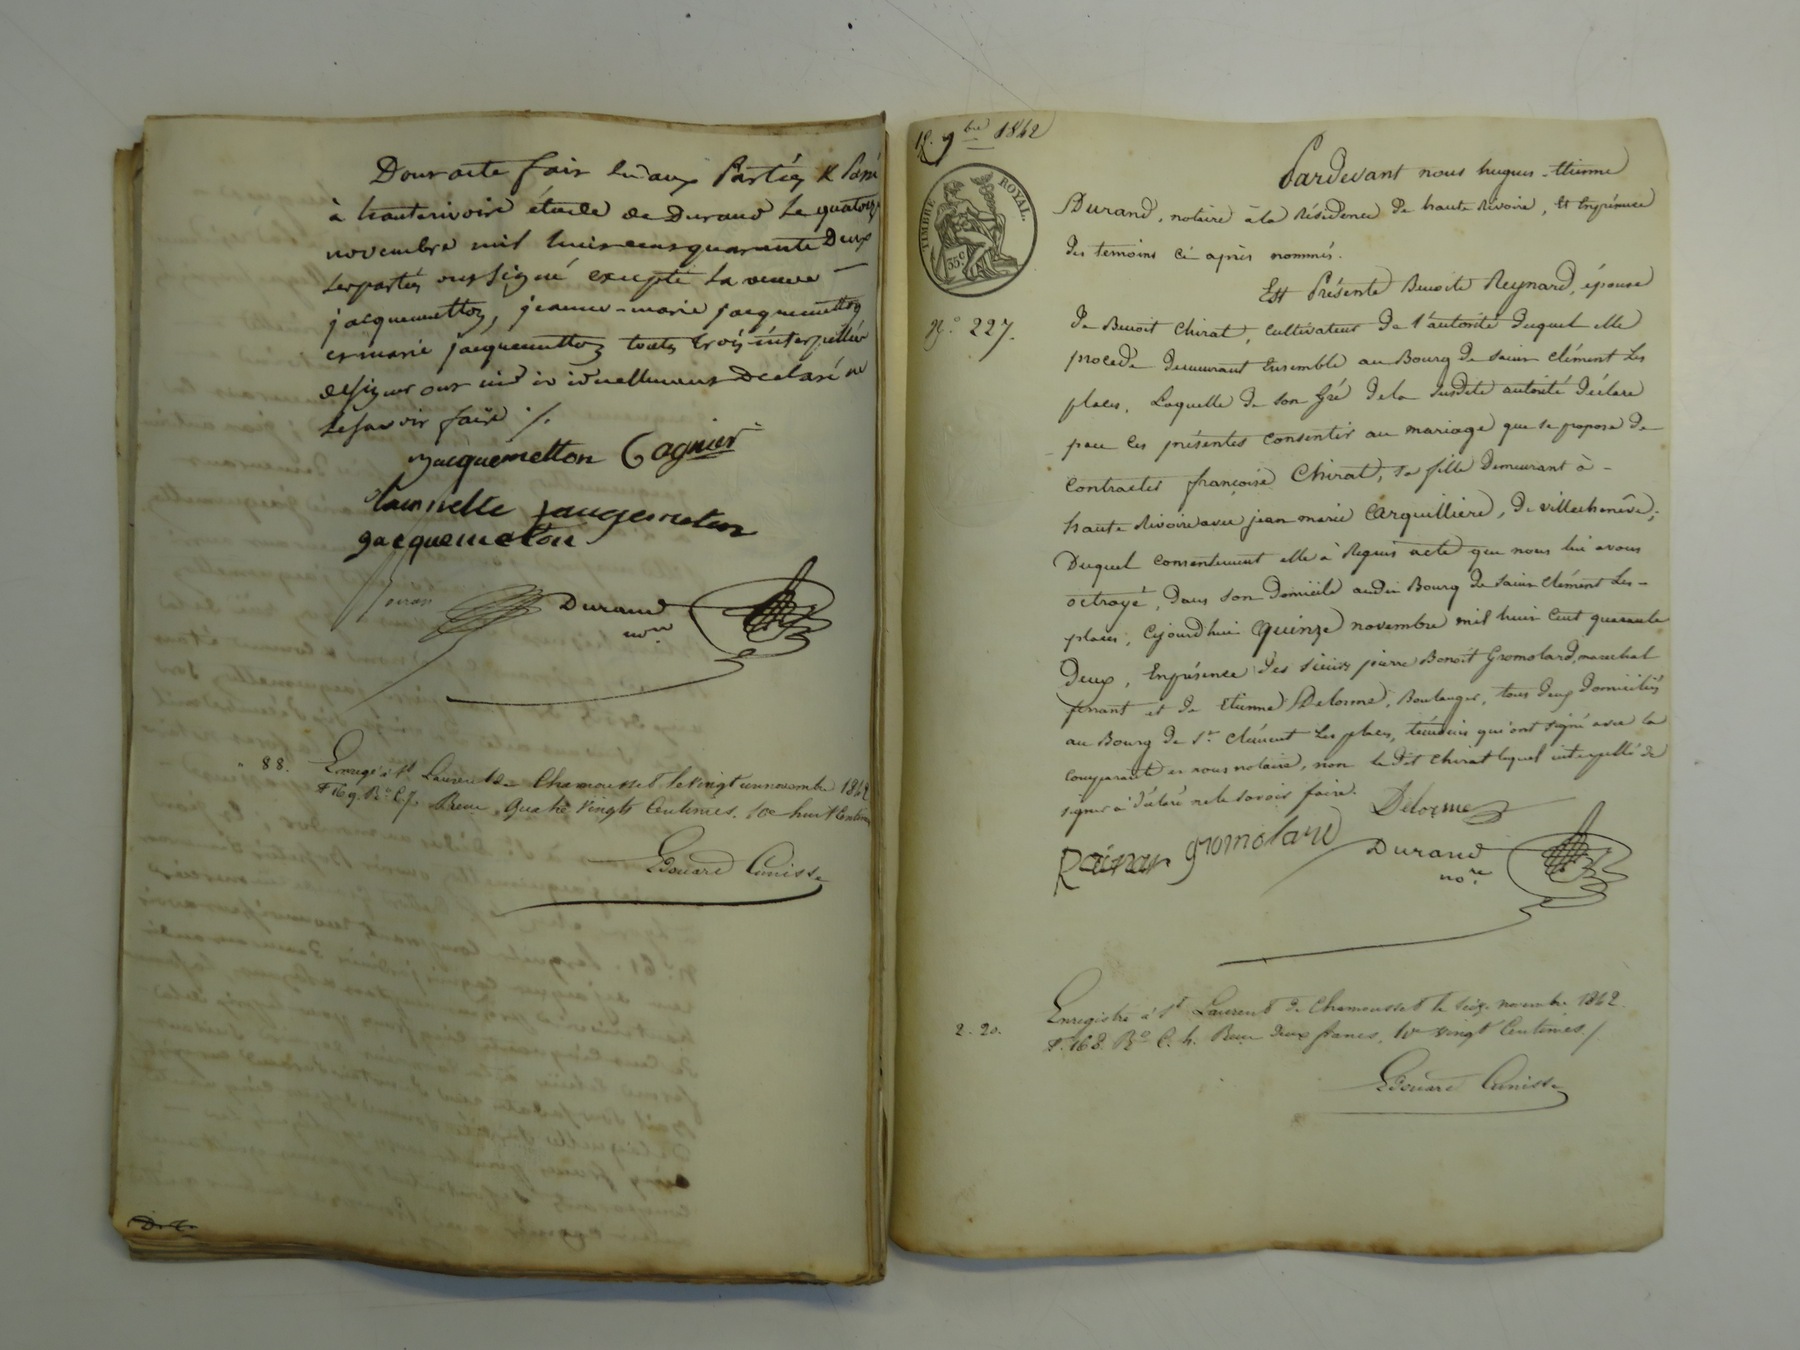 Dont acte fait lu aux Parties &
à hauterivoire étude de Durand le quatorze
novembre mil huit cent quarante Deux
les parties ont signé excepté la veuve
jacquemetton, jeanne-marie jacquemetton
et marie jacquemetton toutes trois interpellées
de signer ont individuellement Declaré ne
le savoir faire ./.
jacquemetton Cagnier
jacquemeton
Durand
no.re
" 88. Enregé à St Laurent de Chamousset le vingt un novembre 1842
f° 169. R° C. 7. Reçu quatre vingts Centimes. 10e huit Centimes
Edouard Cunisse
15. 9bre 1842
TIMBRE ROYAL.
35 c
N.° 227.
Pardevant nous hugues-Etienne
Durand, notaire à la Résidence De haute Rivoire, et En présence
des temoins ci après nommés.
Est Présente Benoite Reynard, épouse
De Benoit Chirat, Cultivateur De l'autorité Duquel elle
procede Demeurant Ensemble au Bourg De saint Clément Les
places, Laquelle De son Gré De la susdite autorité Déclare
par Ces présentes Consentir au mariage que se propose De
Contracter françoise Chirat, sa fille Demeurant à -
haute Rivoire avec jean marie Carquilliere, De villechenêve;
Duquel Consentement elle à Requis acte que nous lui avons
octroyé, Dans son Domicile audit Bourg De saint Clément Les-
places, Cejourd'hui quinze novembre mil huit Cent quarante
Deux, En présence Des sieurs pierre Benoit Gromolard, marechal
ferrant et de Etienne Delorme, Boulanger, tous deux Domiciliés
au Bourg De St Clément Les places, témoins qui ont signé avec la
Comparante et nous notaire, non le dit Chirat lequel interpellé De
signer à Déclaré ne le savoir faire.
Delorme
gromolard
Durand
no.re
2. 20. Enregistré à St Laurent De Chamousset le seize novembre 1842.
f°. 168. R° C. 4. Reçu Deux francs, 10e vingt Centimes. /
Edouard Cunisse